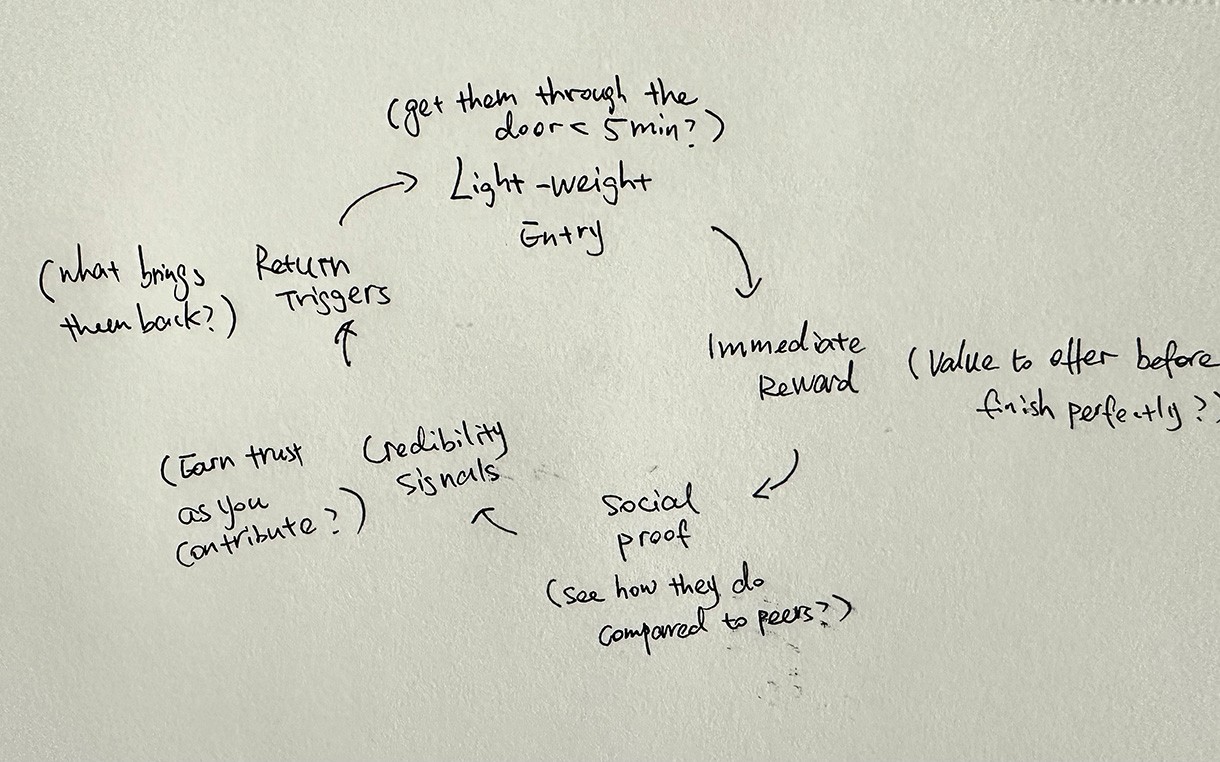 (get them through the
door < 5 min?)
Light-weight
Entry
(what brings
them back?)
Return
Triggers
Immediate
Reward
(Value to offer before
finish perfectly?)
(Earn trust
as you
contribute?)
Credibility
signals
social
proof
(see how they do
compared to peers?)